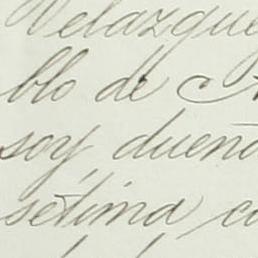 Velazque
blo de A
soy, dueño
setima ca